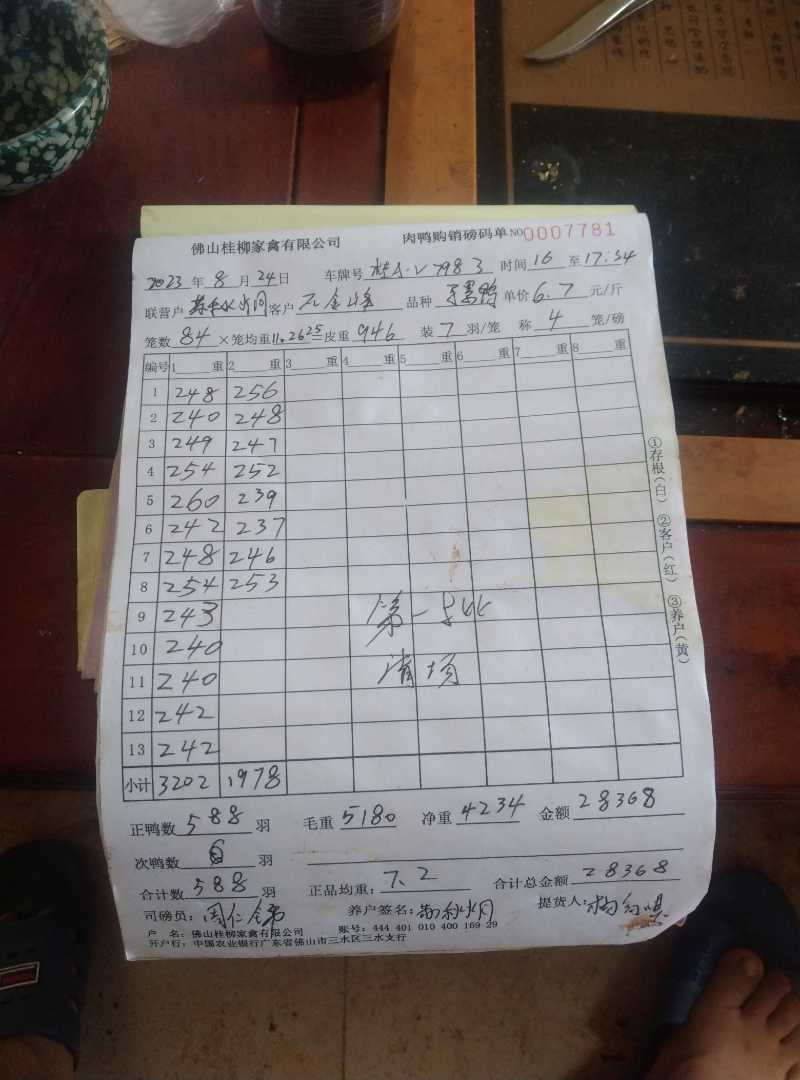 佛山桂柳家禽有限公司 肉鸭购销磅码单 NO 0007781
2023 年 8 月 24 日 车牌号 7983 时间 16 至 17:34
联营户 客户 品种 鸭 单价 6.7 元/斤
笼数 84 ×笼均重 11.2625 =皮重 946 装 7 羽/笼 称 4 笼/磅
编号 1 重 2 重 3 重 4 重 5 重 6 重 7 重 8 重
1 248 256
2 240 248
3 249 247
4 254 252
5 260 239
6 242 237
7 248 246
8 254 253
9 243
10 240
11 240
12 242
13 242
第一批
清场
小计 3202 1978
正鸭数 588 羽 毛重 5180 净重 4234 金额 28368
次鸭数 羽
合计数 588 羽 正品均重: 7.2 合计总金额 28368
司磅员: 周仁 养户签名: 提货人: 
户 名: 佛山桂柳家禽有限公司 账号: 444 401 010 400 169 29
开户行: 中国农业银行广东省佛山市三水区三水支行
①存根(白) ②客户(红) ③养户(黄)